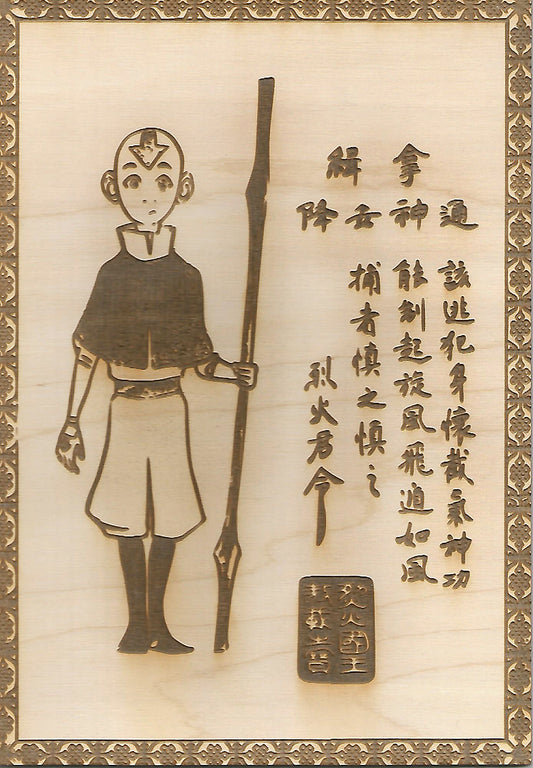 緝拿
降世神通
該逃犯身懷截氣神功
能起旋風飛迫如風
捕者慎之慎之
烈火君令
火國王